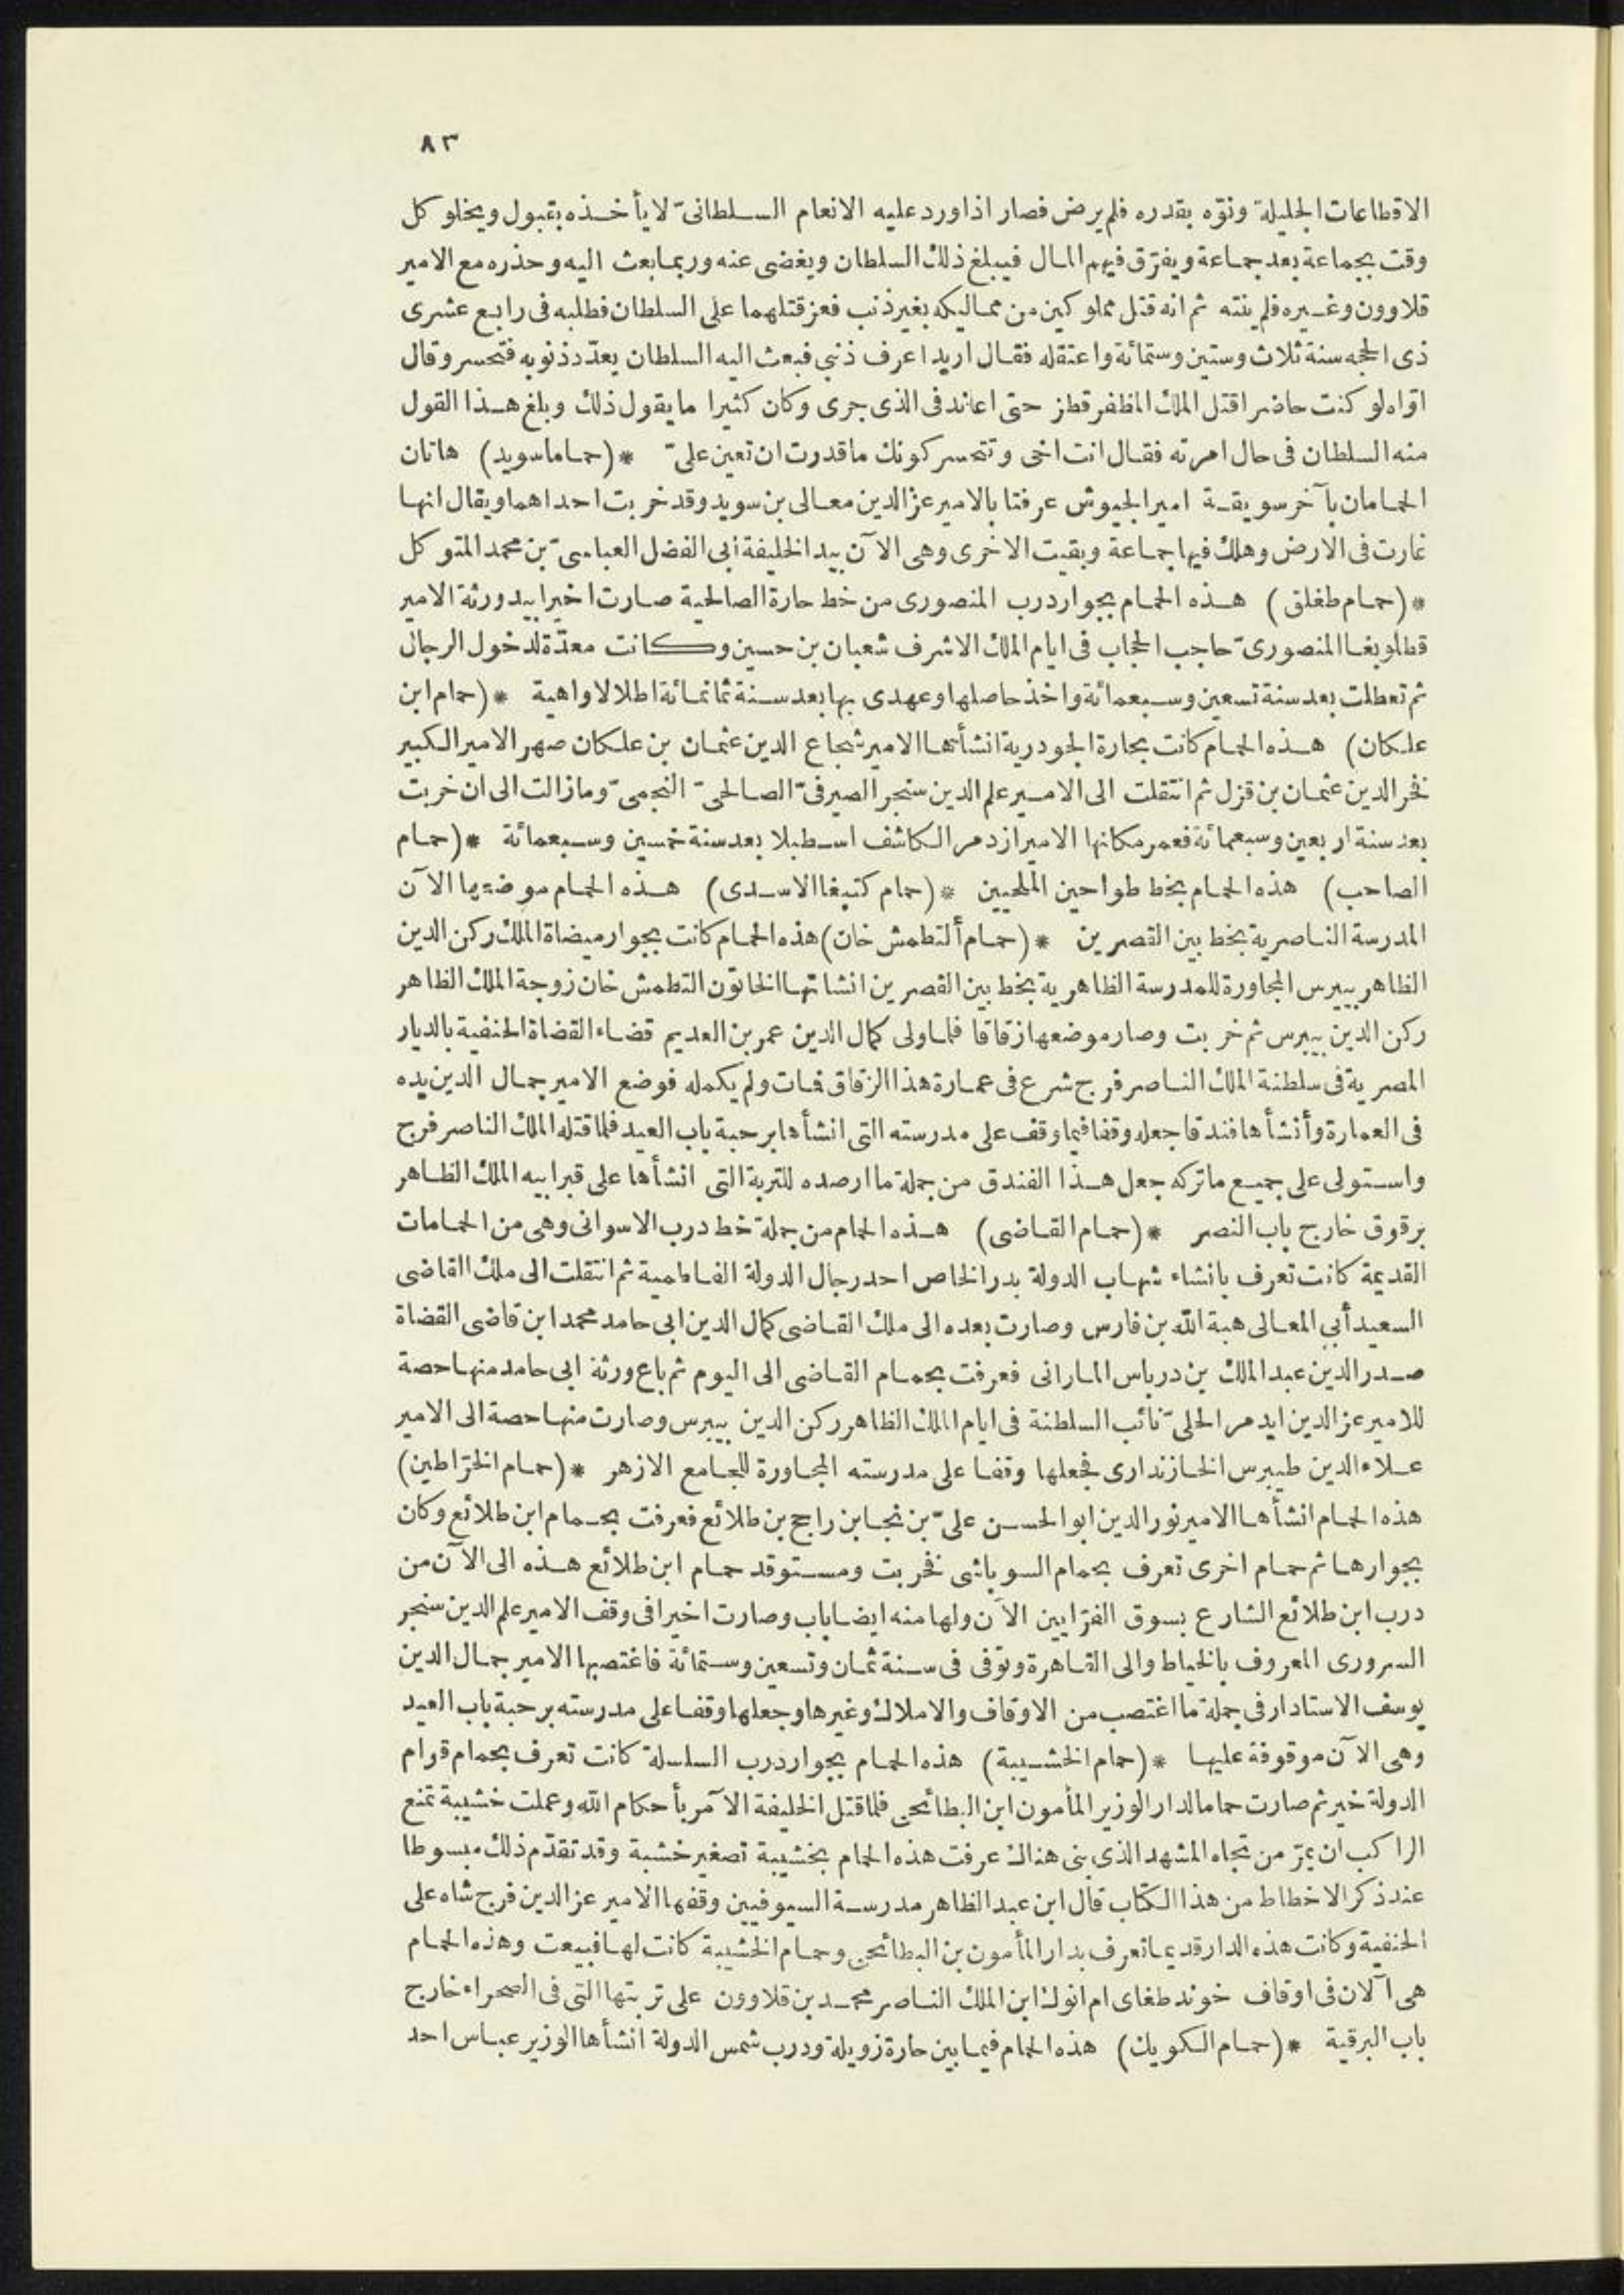 ٨٣
الاقطاعات الجليلة ونوّه بقدره فلم يرض فصار اذا ورد عليه الانعام السلطانىّ لا يأخذه بقبول ويخلو كل
وقت بجماعة بعد جماعة ويفرّق فيهم المال فيبلغ ذلك السلطان ويغضى عنه وربما بعث اليه وحذره مع الامير
قلاوون وغيره فلم ينته ثم انه قتل مملوكين من مماليكه بغير ذنب فعز قتلهما على السلطان فطلبه فى رابع عشرى
ذى الحجه سنة ثلاث وستين وستمائة واعتقله فقال اريد اعرف ذنبى فبعث اليه السلطان يعدّد ذنوبه فتحسر وقال
اوّاه لو كنت حاضر اقتل الملك المظفر قطز حتى اعاند فى الذى جرى وكان كثيرا ما يقول ذلك وبلغ هذا القول
منه السلطان فى حال امرته فقال انت اخى وتتحسر كونك ما قدرت ان تعين علىّ * (حماما سويد) هاتان
الحمامان بآخر سويقة امير الجيوش عرفتا بالامير عز الدين معالى بن سويد وقد خربت احداهما ويقال انها
غارت فى الارض وهلك فيها جماعة وبقيت الاخرى وهى الآن بيد الخليفة ابى الفضل العباسىّ بن محمد المتوكل
* (حمام طغلق) هذه الحمام بجوار درب المنصورى من خط حارة الصالحية صارت اخيرا بيد ورثة الامير
قطلوبغا المنصورىّ حاجب الحجاب فى ايام الملك الاشرف شعبان بن حسين وكانت معدّة لدخول الرجال
ثم تعطلت بعد سنة تسعين وسبعمائة واخذ حاصلها وعهدى بها بعد سنة ثمانمائة اطلالا واهية * (حمام ابن
علكان) هذه الحمام كانت بحارة الجودرية انشأها الامير شجاع الدين عثمان بن علكان صهر الامير الكبير
فخر الدين عثمان بن قزل ثم انتقلت الى الامير علم الدين سنجر الصيرفىّ الصالحىّ النجمىّ وما زالت الى ان خربت
بعد سنة اربعين وسبعمائة فعمر مكانها الامير ازدمر الكاشف اسطبلا بعد سنة خمسين وسبعمائة * (حمام
الصاحب) هذه الحمام بخط طواحين الملحيين * (حمام كتبغا الاسدى) هذه الحمام موضعها الآن
المدرسة الناصرية بخط بين القصرين * (حمام ألتطمش خان) هذه الحمام كانت بجوار ميضاة الملك ركن الدين
الظاهر بيبرس المجاورة للمدرسة الظاهرية بخط بين القصرين انشاتها الخاتون التطمش خان زوجة الملك الظاهر
ركن الدين بيبرس ثم خربت وصار موضعها زقاقا فلما ولى كمال الدين عمر بن العديم قضاء القضاة الحنفية بالديار
المصرية فى سلطنة الملك الناصر فرج شرع فى عمارة هذا الزقاق فمات ولم يكمله فوضع الامير جمال الدين يده
فى العمارة وأنشأها فندقا جعله وقفا فيما وقف على مدرسته التى انشأها برحبة باب العيد فلما قتله الملك الناصر فرج
واستولى على جميع ما تركه جعل هذا الفندق من جملة ما ارصده للتربة التى انشأها على قبر ابيه الملك الظاهر
برقوق خارج باب النصر * (حمام القاضى) هذه الحمام من جملة خط درب الاسوانى وهى من الحمامات
القديمة كانت تعرف بانشاء شهاب الدولة بدر الخاص احد رجال الدولة الفاطمية ثم انتقلت الى ملك القاضى
السعيد أبى المعالى هبة الله بن فارس وصارت بعده الى ملك القاضى كمال الدين ابى حامد محمد ابن قاضى القضاة
صدر الدين عبد الملك بن درباس المارانى فعرفت بحمام القاضى الى اليوم ثم باع ورثة ابى حامد منها حصة
للامير عز الدين ايدمر الحلىّ نائب السلطنة فى ايام الملك الظاهر ركن الدين بيبرس وصارت منها حصة الى الامير
علاء الدين طيبرس الخازندارى فجعلها وقفا على مدرسته المجاورة للجامع الازهر * (حمام الخرّاطين)
هذه الحمام انشأها الامير نور الدين ابو الحسن علىّ بن نجا بن راجح بن طلائع فعرفت بحمام ابن طلائع وكان
بجوارها ثم حمام اخرى تعرف بحمام السوباشى فخربت ومستوقد حمام ابن طلائع هذه الى الآن من
درب ابن طلائع الشارع بسوق الفرّايين الآن ولها منه ايضا باب وصارت اخيرا فى وقف الامير علم الدين سنجر
السرورى المعروف بالخياط والى القاهرة وتوفى فى سنة ثمان وتسعين وستمائة فاغتصبها الامير جمال الدين
يوسف الاستادار فى جملة ما اغتصب من الاوقاف والاملاك وغيرها وجعلها وقفا على مدرسته برحبة باب العيد
وهى الآن موقوفة عليها * (حمام الخشيبة) هذه الحمام بجوار درب السلسلة كانت تعرف بحمام قوام
الدولة خير ثم صارت حماما لدار الوزير المأمون ابن البطائحى فلما قتل الخليفة الآمر بأحكام الله وعملت خشيبة تمنع
الراكب ان يمرّ من تجاه المشهد الذى بنى هناك عرفت هذه الحمام بخشيبة تصغير خشبة وقد تقدّم ذلك مبسوطا
عند ذكر الاخطاط من هذا الكتاب قال ابن عبد الظاهر مدرسة السيوفيين وقفها الامير عز الدين فرج شاه على
الحنفية وكانت هذه الدار قديما تعرف بدار المأمون بن البطائحى وحمام الخشيبة كانت لها فبيعت وهذه الحمام
هى آلان فى اوقاف خوند طغاى ام انوك ابن الملك الناصر محمد بن قلاوون على تربتها التى فى الصحراء خارج
باب البرقية * (حمام الكويك) هذه الحمام فيما بين حارة زويلة ودرب شمس الدولة انشأها الوزير عباس احد